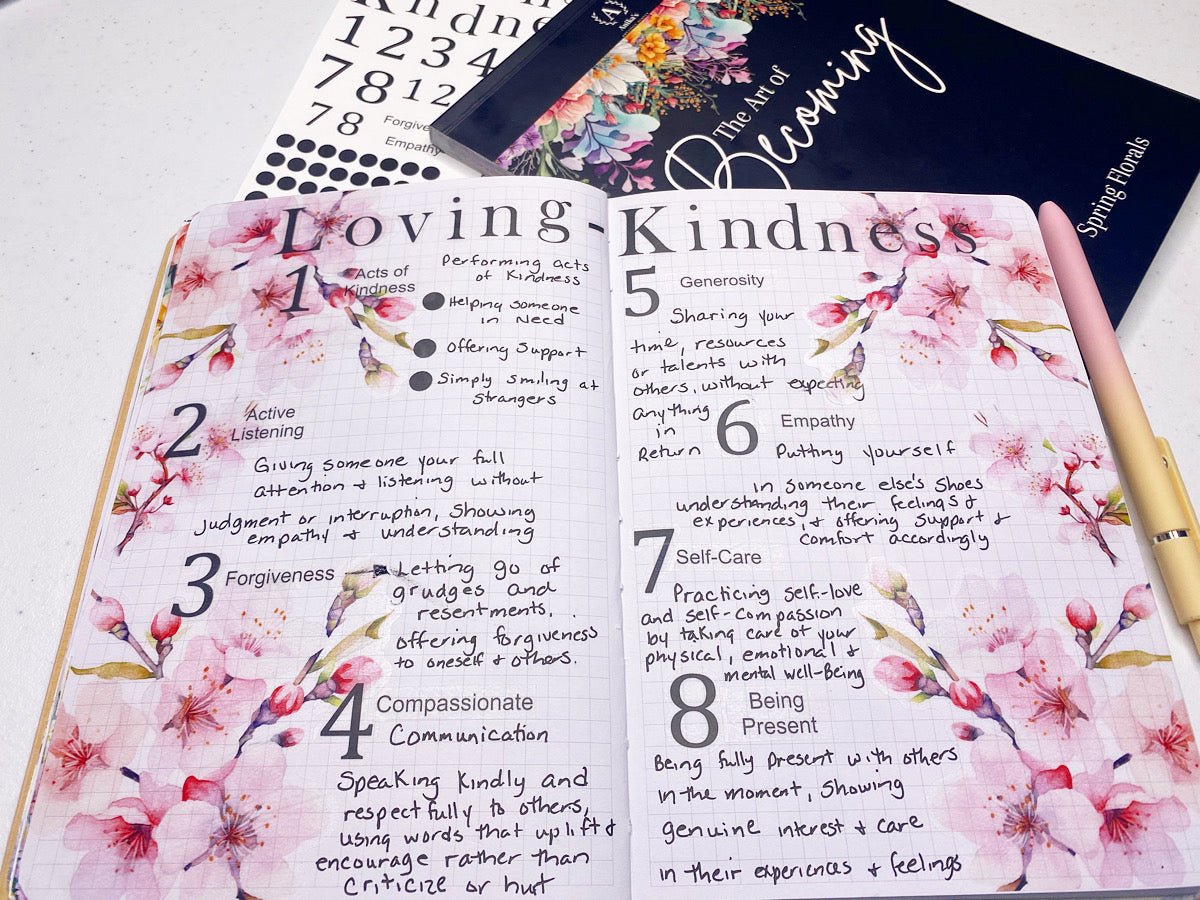 Kndne
1 2 3 4
7 8 1 2
7 8
Forgive
Empathy
A
Anika's
The Art of
Becoming
Spring Florals
Loving-Kindness
1 Acts of
Kindness
Performing acts
of Kindness
Helping someone
in Need
Offering Support
Simply smiling at
strangers
2 Active
Listening
Giving someone your full
attention & listening without
judgment or interruption, showing
empathy & understanding
3 Forgiveness
Letting go of
grudges and
resentments.
offering forgiveness
to oneself & others.
4 Compassionate
Communication
Speaking kindly and
respectfully to others,
using words that uplift &
encourage rather than
criticize or hurt
5 Generosity
Sharing your
time, resources
or talents with
others, without expecting
anything
in
Return
6 Empathy
Putting yourself
in someone else's shoes
understanding their feelings &
experiences, & offering support &
comfort accordingly
7 Self-Care
Practicing self-love
and self-compassion
by taking care of your
physical, emotional &
mental well-Being
8 Being
Present
Being fully present with others
in the moment, showing
genuine interest & care
in their experiences & feelings